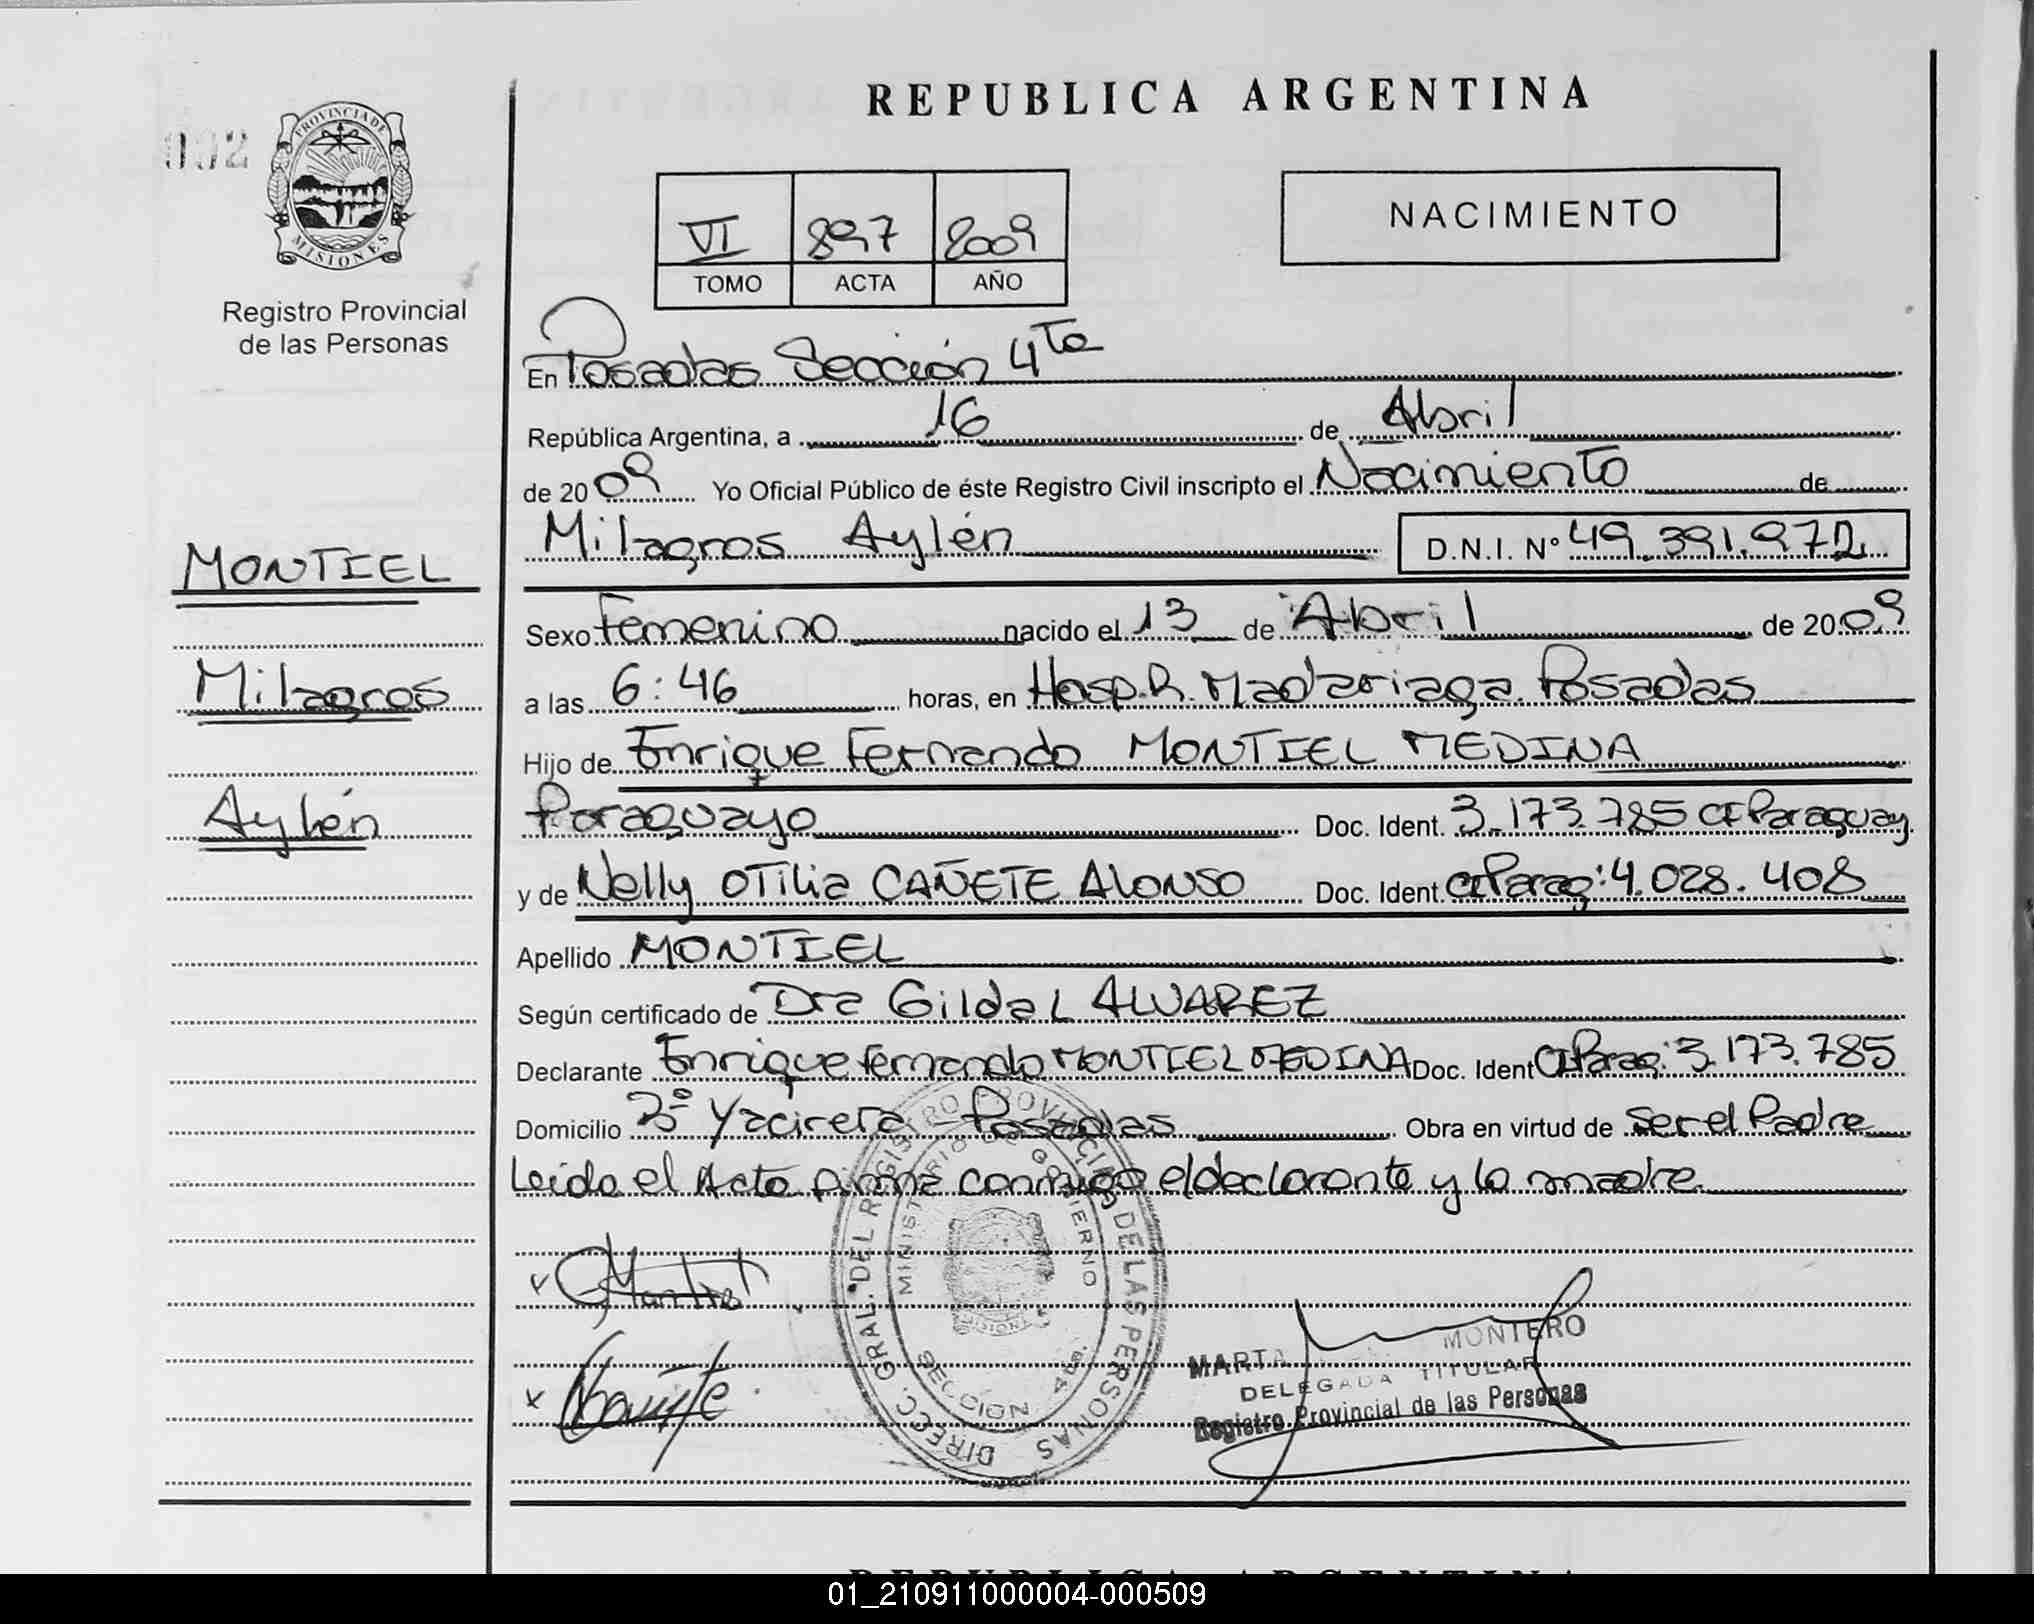 REPUBLICA ARGENTINA
002
PROVINCIA DE
MISIONES
Registro Provincial
de las Personas
VI 897 2009
TOMO ACTA AÑO
NACIMIENTO
En Posadas Sección 4ta
República Argentina, a 16 de Abril
de 2009 Yo Oficial Público de éste Registro Civil inscripto el Nacimiento de
Milagros Aylén D.N.I. Nº 49.391.972
MONTIEL
Milagros
Aylén
Sexo Femenino nacido el 13 de Abril de 2009
a las 6:46 horas, en Hosp. R. Madariaga. Posadas
Hijo de Enrique Fernando MONTIEL MEDINA
Paraguayo Doc. Ident. 3.173.785 CI Paraguay
y de Nelly OTilia CAÑETE ALONSO Doc. Ident. CI Parag: 4.028.408
Apellido MONTIEL
Según certificado de Dra Gilda L ALVAREZ
Declarante Enrique Fernando MONTIEL MEDINA Doc. Ident CI Parag: 3.173.785
Domicilio Bº Yacirera - Posadas Obra en virtud de Ser el Padre
Leida el Acta firma conmigo el declarante y la madre
DIRECC. GRAL. DEL REGISTRO PROVINCIAL DE LAS PERSONAS
MINISTERIO DE GOBIERNO
MISIONES
SECCION 4ta.
MARTA MONTERO
DELEGADA TITULAR
Registro Provincial de las Personas
REPUBLICA ARGENTINA
01_210911000004-000509